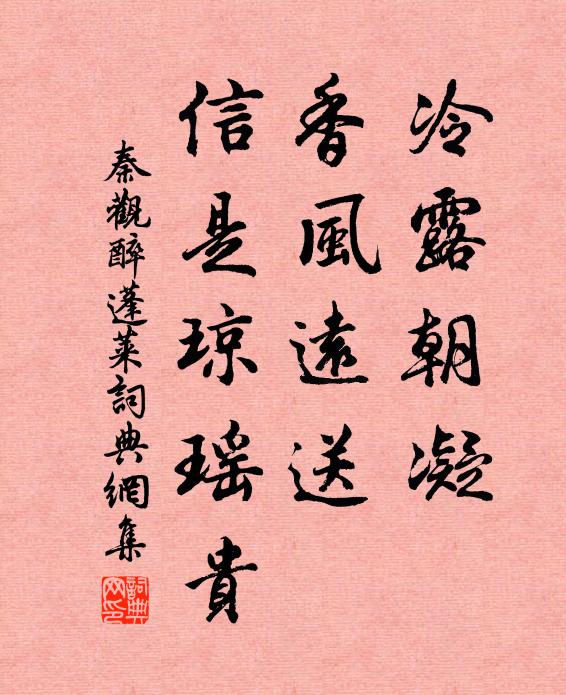 冷露朝凝
香風遠送
信是琼瑶貴
秦觀醉蓬萊詞典網集
詞典网印